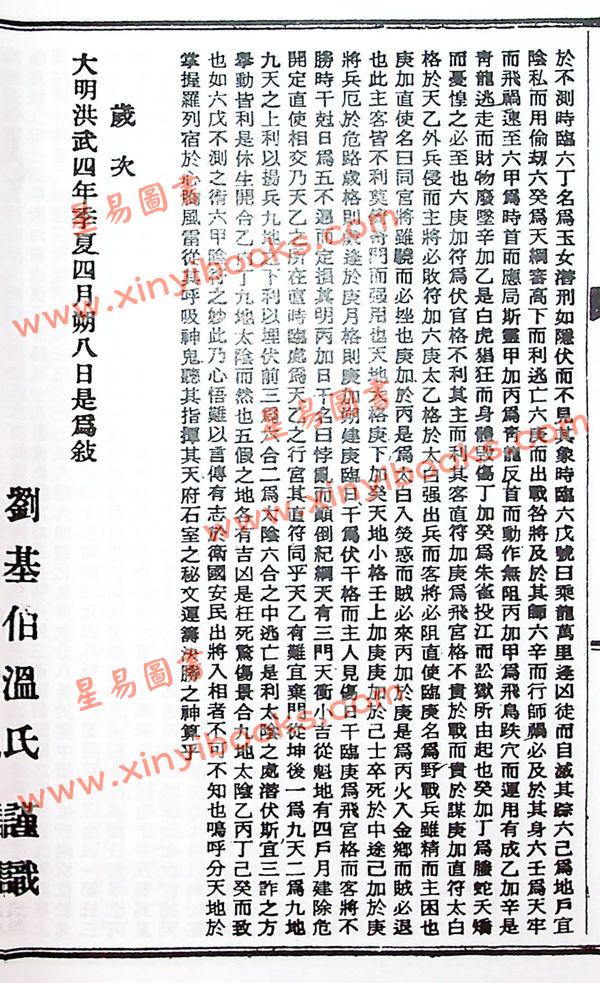 於不測時臨六丁名爲玉女潛刑如隱伏而不見其象時臨六戊號曰乘龍萬里逢凶徒而自滅其踪六己爲地戶宜
陰私而用偷刼六癸爲天綱審高下而利逃亡六庚而出戰咎將及於其師六辛而行師禍必及於其身六壬爲天牢
而飛禍遝至六甲爲時首而應局斯靈甲加丙爲靑龍反首而動作無阻丙加甲爲飛鳥跌穴而運用有成乙加辛是
靑龍逃走而財物廢墜辛加乙是白虎猖狂而身體毀傷丁加癸爲朱雀投江而訟獄所由起也癸加丁爲螣蛇夭矯
而憂惶之必至也六庚加符爲伏官格不利其主而利其客直符加庚爲飛宮格不貴於戰而貴於謀庚加直符太白
格於天乙外兵侵而主將必敗符加六庚太乙格於太白强出兵而客將必阻直使臨庚名爲野戰兵雖精而主困也
庚加直使名曰同宮將雖驍而必挫也庚加於丙是爲太白入熒惑而賊必來丙加於庚是爲丙火入金鄕而賊必退
也此主客皆不利莫 奇門而强用也天地大格庚下加癸天地小格壬上加庚庚加於己士卒死於中途己加於庚
將兵厄於危路歲格則 逢於庚月格則庚加朔建庚臨日干爲伏干格而主人見傷日干臨庚爲飛宮格而客將不
勝時干尅日爲五不遇而定損其明丙加日干名曰悖亂而顚倒紀綱天有三門天衝小吉從魁地有四戶月建除危
開定直使相交乃天乙之所在直時臨處爲天乙之行宮其直符同乎天乙有難宜棄門從坤後一爲九天二爲九地
九天之上利以揚兵九地之下利以埋伏前三爲六合二爲太陰六合之中逃亡是利太陰之處潛伏斯宜三詐之方
舉動皆利是休生開合乙丙丁九地太陰而然也五假之地各有吉凶是杜死驚傷景合九地太陰乙丙丁己癸而致
也如六戊不測之術六甲陰符之妙此乃心悟難以言傳有志於衛國安民出將入相者不可不知也嗚呼分天地於
掌握羅列宿於心胸風雷從其呼吸神鬼聽其指揮其天府石室之秘文運籌決勝之神算乎
歲次
大明洪武四年季夏四月朔八日是爲敍
劉基伯溫氏謹識
星易圖書
www.xinyibooks.com
星易圖書
www.xinyibooks.com
星易圖書
www.xinyibooks.com